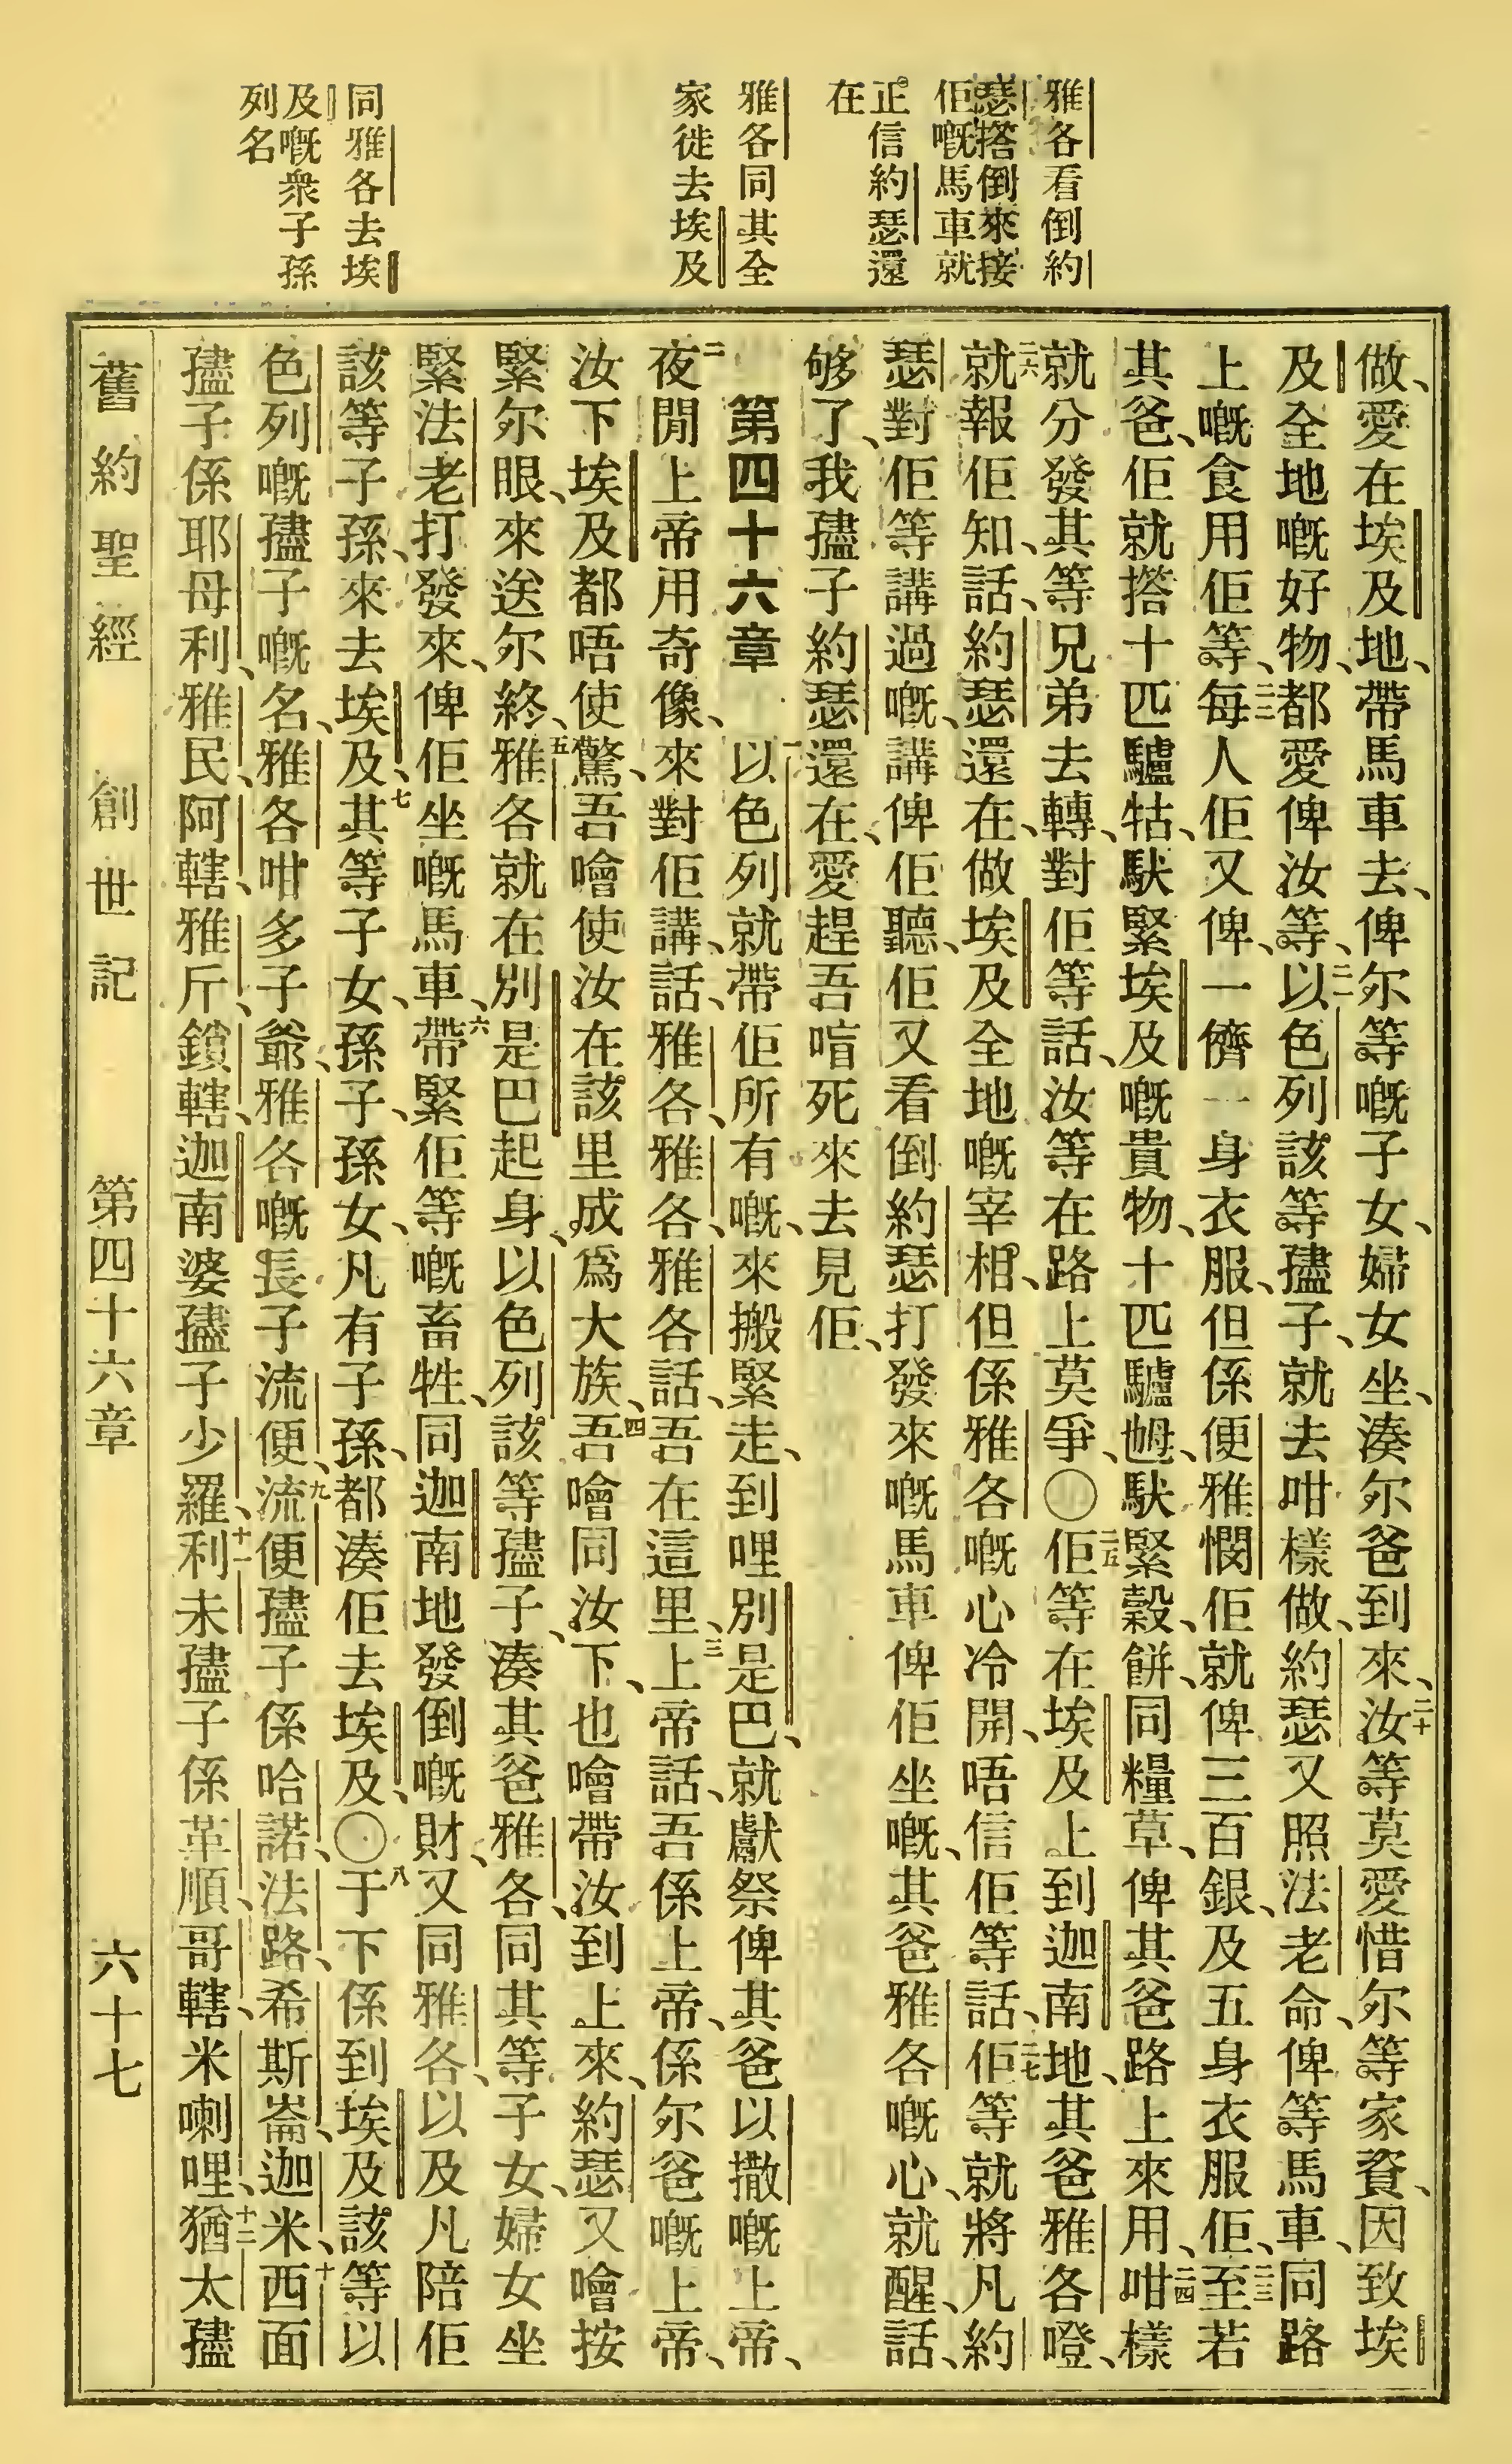 雅各看倒約
瑟搭倒來接
佢嘅馬車就
正信約瑟還
在
雅各同其全
家徙去埃及
同雅各去埃
及嘅衆子孫
列名
做、愛在埃及地、帶馬車去、俾尔等嘅子女、婦女坐、湊尔爸到來、二十汝等莫愛惜尔等家資、因致埃
及全地嘅好物、都愛俾汝等、二一以色列該等孻子、就去咁樣做、約瑟又照法老命、俾等馬車、同路
上嘅食用佢等、二二每人佢又俾、一儕一身衣服、但係便雅憫佢就俾三百銀、及五身衣服佢、二三至若
其爸、佢就搭十匹驢牯、馱緊埃及嘅貴物、十匹驢𡜵、馱緊穀、餅、同糧草、俾其爸路上來用、二四咁樣
就分發其等兄弟去轉、對佢等話、汝等在路上莫爭、〇二五佢等在埃及上到迦南地、其爸雅各嶝、
二六就報佢知、話、約瑟還在、做埃及全地嘅宰相、但係雅各嘅心冷開、唔信佢等話、二七佢等就將凡約
瑟對佢等講過嘅、講俾佢聽、佢又看倒約瑟打發來嘅馬車俾佢坐嘅、其爸雅各嘅心、就醒、話、
够了、我孻子約瑟還在、愛趕吾唁死來去見佢、
第四十六章 一以色列就帶佢所有嘅、來搬緊走、到哩別是巴、就獻祭俾其爸以撒嘅上帝、
二夜間上帝用奇像、來對佢講、話、雅各、雅各、雅各話、吾在這里、三上帝話、吾係上帝、係尔爸嘅上帝、
汝下埃及都唔使驚、吾噲使汝在該里成爲大族、四吾噲同汝下、也噲帶汝到上來、約瑟又噲按
緊尔眼、來送尔終、五雅各就在別是巴起身、以色列該等孻子、湊其爸雅各、同其等子女、婦女坐
緊法老打發來、俾佢坐嘅馬車、六帶緊佢等嘅畜牲、同迦南地發倒嘅財、又同雅各、以及凡陪佢
該等子孫、來去埃及、七其等子女、孫子、孫女、凡有子孫、都湊佢去埃及、〇八于下係到埃及該等以
色列嘅孻子嘅名、雅各咁多子爺、雅各嘅長子流便、九流便孻子係哈諾、法路、希斯崙、迦米、十西面
孻子係耶母利、雅民、阿轄、雅斤、鎖轄、迦南婆孻子少羅、十一利未孻子係革順、哥轄、米喇哩、十二猶太孻
舊約聖經 創世記 第四十六章 六十七